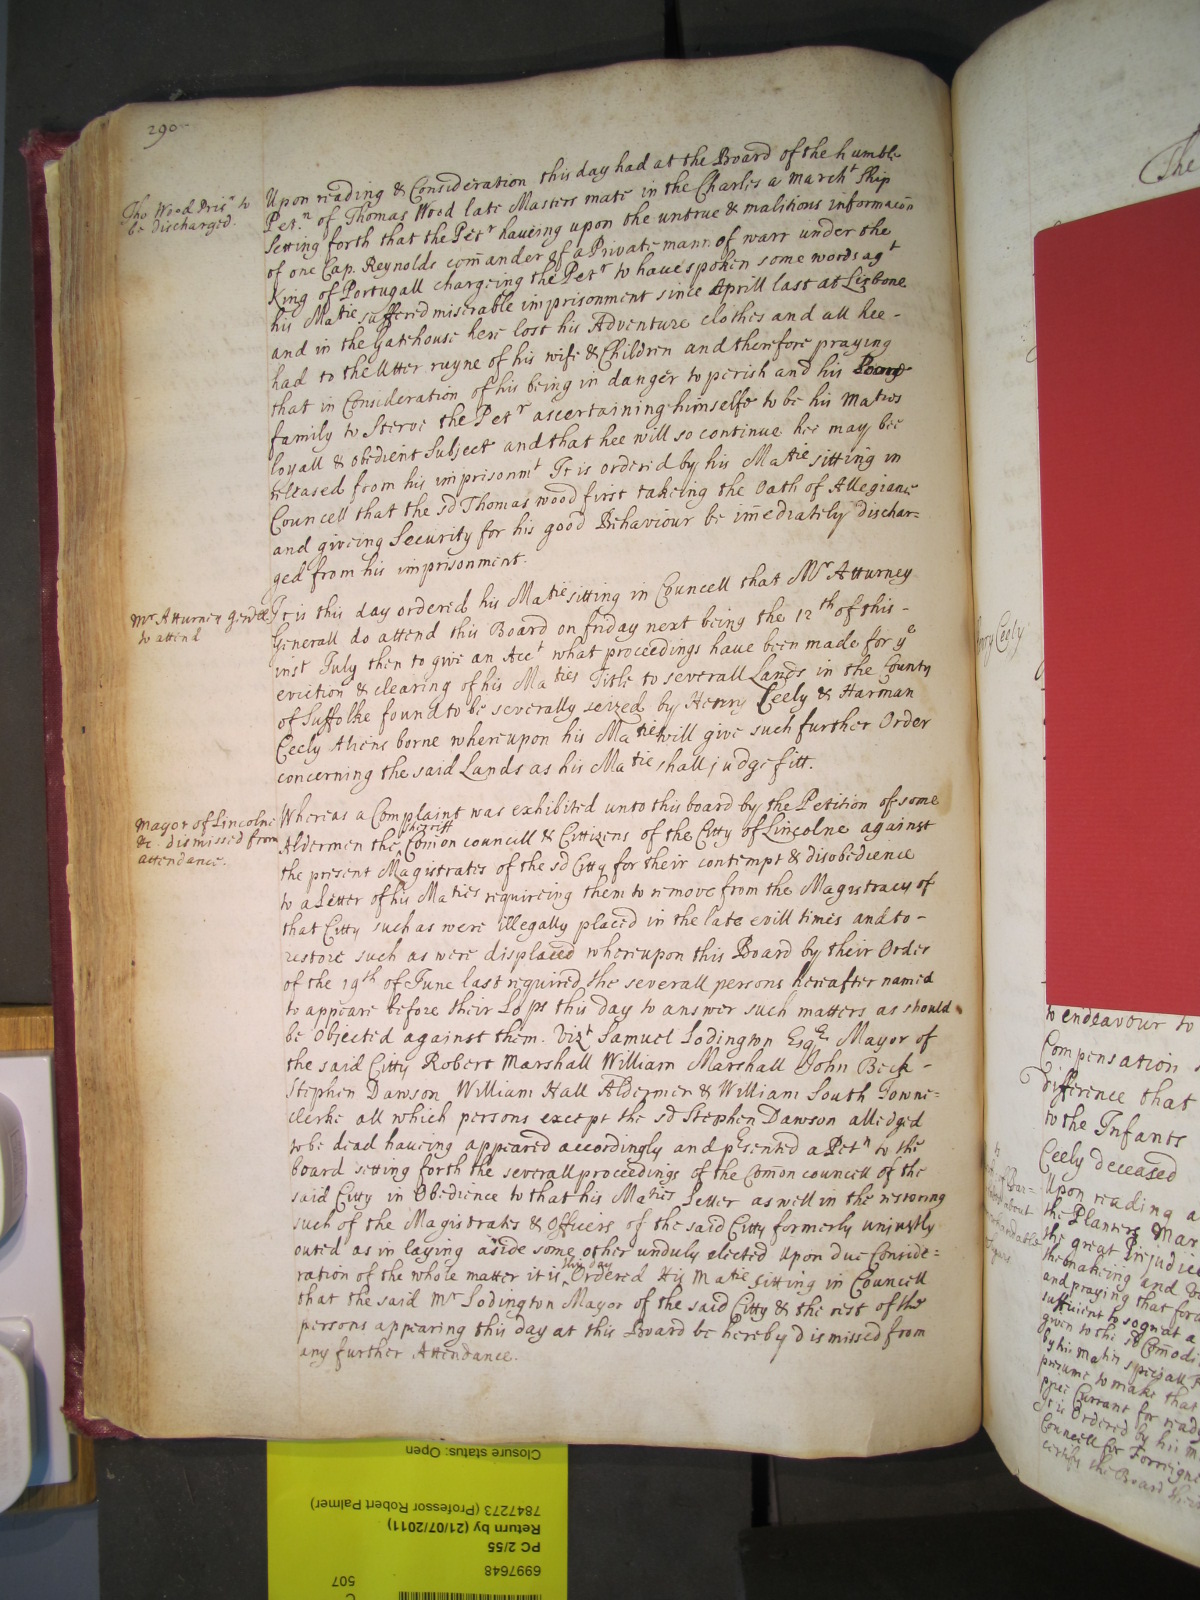 290
Tho Wood Pris.r to
be discharged.
Upon reading & Consideration this day had at the Board of the humble
Pet.n of Thomas Wood late Masters mate in the Charles a march.t ship
Setting forth that the Pet.r haveing upon the untrue & malitious informacōn
of one Cap. Reynolds com̄ander of a Private mann of warr under the
King of Portugall chargeing the Pet.r to have spoken some words ag.t
his Ma.tie suffered miserable imprisonment since Aprill last at Lisbone
and in the Gatehouse here lost his Adventure clothes and all hee-
had to the Utter ruyne of his wife & Children and therefore praying
that in Consideration of his being in danger to perish and his Poore
family to Sterve the Pet.r ascertaining himselfe to be his Maties
loyall & obedient Subject and that hee will so continue hee may bee
released from his imprisonm.t It is ordered by his Ma.tie sitting in
Councell that the s.d Thomas wood first takeing the Oath of Allegiance
and giveing Security for his good Behaviour be im̄ediately dischar=
ged from his imprisonment.
M.r Atturney Gen.ll
to attend
It is this day ordered his Ma.tie sitting in Councell that M.r Atturney
Generall do attend this Board on friday next being the 12.th of this -
inst July then to give an Acc.t what proceedings have been made for y.e
eviction & clearing of his Ma.ties Title to severall Lands in the County
of Suffolke found to be severally seized by Henry Ceely & Harman
Ceely Aliens borne whereupon his Ma.tie will give such further Order
concerning the said Lands as his Ma.tie shall judge fitt.
Mayor of Lincolne
&c. dismissed from
attendance.
Whereas a Complaint was exhibited unto this board by the Petition of some
Aldermen the sheriff Com̄on councill & Cittizens of the Citty of Lincolne against
the present Magistrates of the s.d Citty for their contempt & disobedience
to a Letter of his Ma.ties requireing them to remove from the Magistracy of
that Citty such as were illegally placed in the late evill times and to -
restore such as were displaced whereupon this Board by their Order
of the 19.th of June last required the severall persons hereafter named
to appeare before their Lo.ps this day to answer such matters as should
be Objected against them. Viz.t Samuel Lodington Esq.e Mayor of
the said Citty Robert Marshall William Marshall John Beck -
Stephen Dawson William Hall Aldermen & William South Towne=
clerke all which persons except the s.d Stephen Dawson alledged
to be dead haveing appeared accordingly and p̄sented a Pet.n to the
board setting forth the severall proceedings of the Com̄on councell of the
said Citty in Obedience to that his Ma.ties Letter as well in the restoring
such of the Magistrates & Officers of the said Citty formerly unjustly
outed as in laying aside some other unduly elected Upon due Conside=
ration of the whole matter it is this day Ordered His Ma.tie sitting in Councell
that the said M.r Lodington Mayor of the said Citty & the rest of the
persons appearing this day at this Board be hereby dismissed from
any further Attendance.
The
Ceely
to endeavour to
Compensation
difference that
to the Infants
Ceely deceased
Upon reading a
the Planters Mar
the great Prejudice
the makeing and
and praying that for
sufficient to
given to the s.d Com̄odi
by his Ma.ties speciall
presume to make that
Currant for
It is Ordered by his M
Councell for Forreigne
certify the Board
Closure status: Open
7847273 (Professor Robert Palmer)
Return by (21/07/2011)
PC 2/55
6997648
507